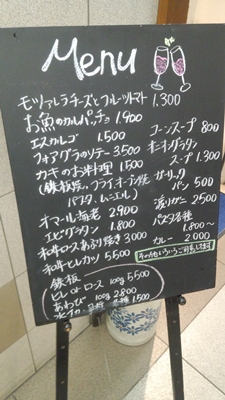 Menu
モッツァレラチーズとフルーツトマト 1,300
お魚のカルパッチョ 1,900
エスカルゴ 1,500
フォアグラのソテー 3,500
カキのお料理 1,500
(鉄板焼、フライ、オーブン焼
パスタ、ムニエル)
オマール海老 2900
エビグラタン 1,800
和牛ロースあぶり焼き 3,000
和牛ヒレカツ 5,500
鉄板
ヒレorロース 100g 5,500
あわび 100g 2,800
1,500
コーンスープ 800
オニオングラタン
スープ 1,300
ガーリック
パン 500
2500
パスタ各種
1,800〜
カレー 2,000
その他いろいろご用意してます